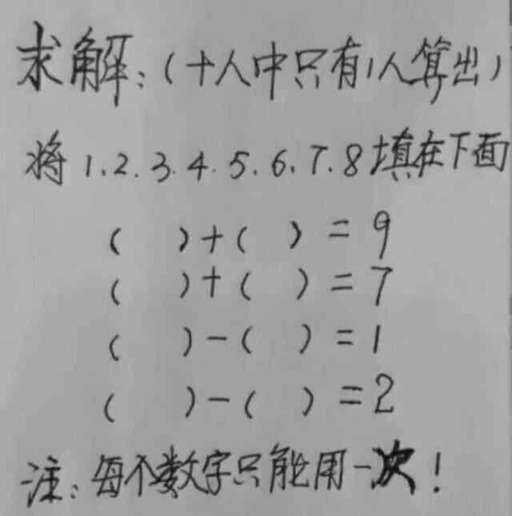 求解:(十人中只有1人算出)
将1.2.3.4.5.6.7.8填在下面
( )+( )=9
( )+( )=7
( )-( )=1
( )-( )=2
注:每个数字只能用一次!